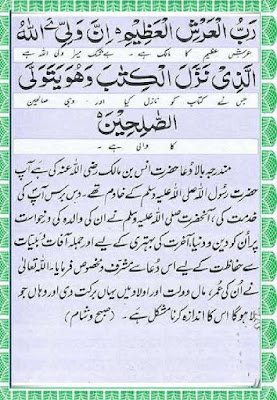 رَبُّ الْعَرْشِ الْعَظِيْمِ ۞ اِنَّ وَلِيِّ ےَ اللهُ
عرش عظیم کا مالک ہے ۔ بے شک میرا ولی اللہ ہے
الَّذِيْ نَزَّلَ الْكِتٰبَ وَهُوَ يَتَوَلَّى
جس نے کتاب کو نازل کیا اور وہی صالحین
الصّٰلِحِيْنَ ۞
کا والی ہے ۔
مندرجہ بالا دُعا حضرت انس بن مالک رضی اللہ عنہ کی ہے آپ
حضرت رسول اللہ صلی اللہ علیہ وسلم کے خادم تھے ۔ دس برس آپ کی
خدمت کی، آنحضرت صلی اللہ علیہ وسلم نے ان کی والدہ کی درخواست
پر اُن کو دین و دنیا و آخرت کی بہتری کے لیے اور جملہ آفات و بلیّات
سے حفاظت کے لیے اس دُعا سے مشرف و مخصوص فرمایا۔ اللہ تعالیٰ
نے اُن کی عُمر، مال و دولت اور اولاد میں یہاں برکت دی اور وہاں جو
ہو گا اس کا اندازہ کرنا مشکل ہے ۔ (صبح و شام)